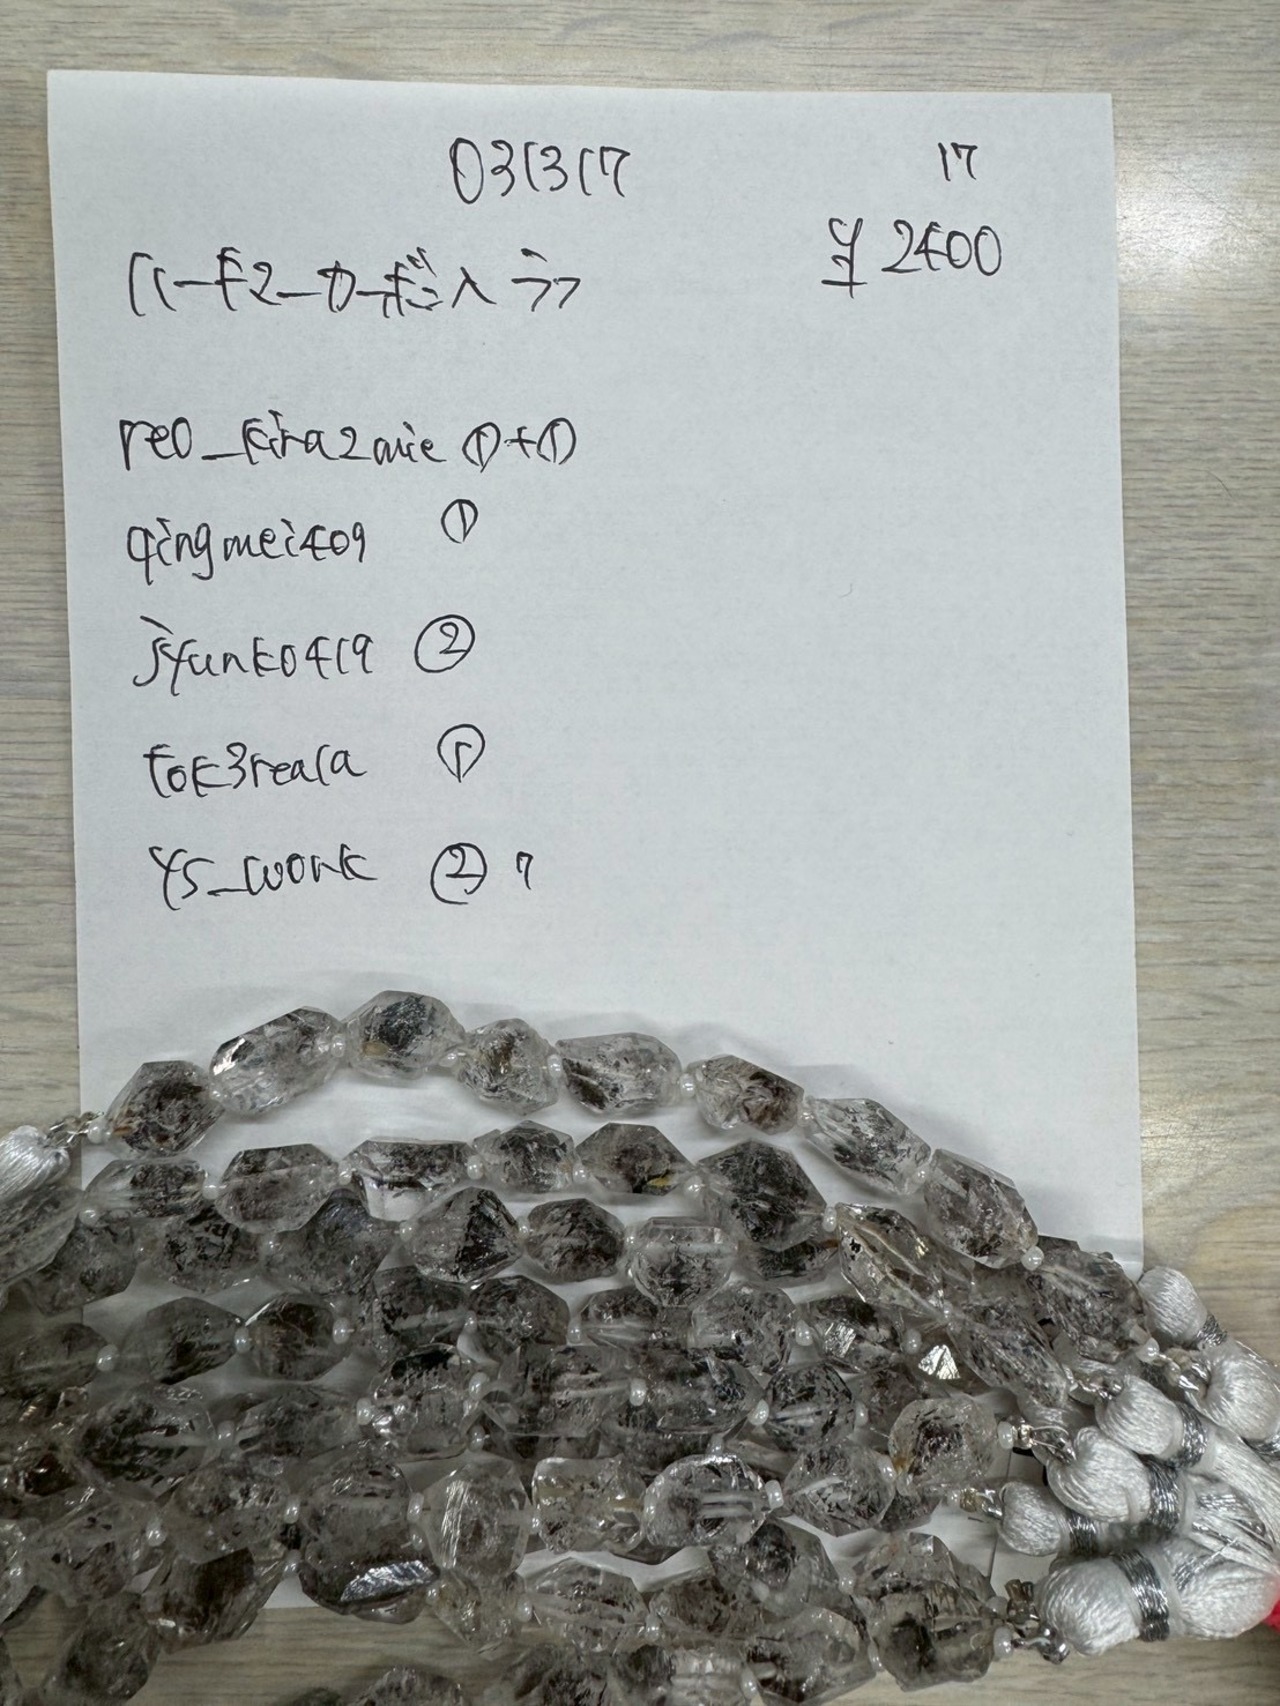 031317
17
ハーキマーカーボン入り
¥2400
reo_kira2mie ①+①
qingmei409 ①
jyunko419 ②
tok3reala ①
ys_work ② 7